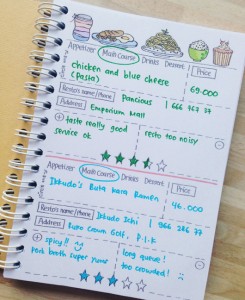 Appetizer Main Course Drinks Dessert Price
chicken and blue cheese
(pasta)
69.000
Resto's name / phone Pancious | 666 163 77
Address Emporium Mall
+ taste really good
service ok
- resto too noisy
Appetizer Main Course Drinks Dessert Price
Ikkudo's Buta kara Ramen
46.000
Resto's name / Phone Ikkudo Ichi | 966 286 77
Address Ruko Crown Golf, P.I.K
+ spicy!!
Pork broth super yumz
- long queue!
too crowded!